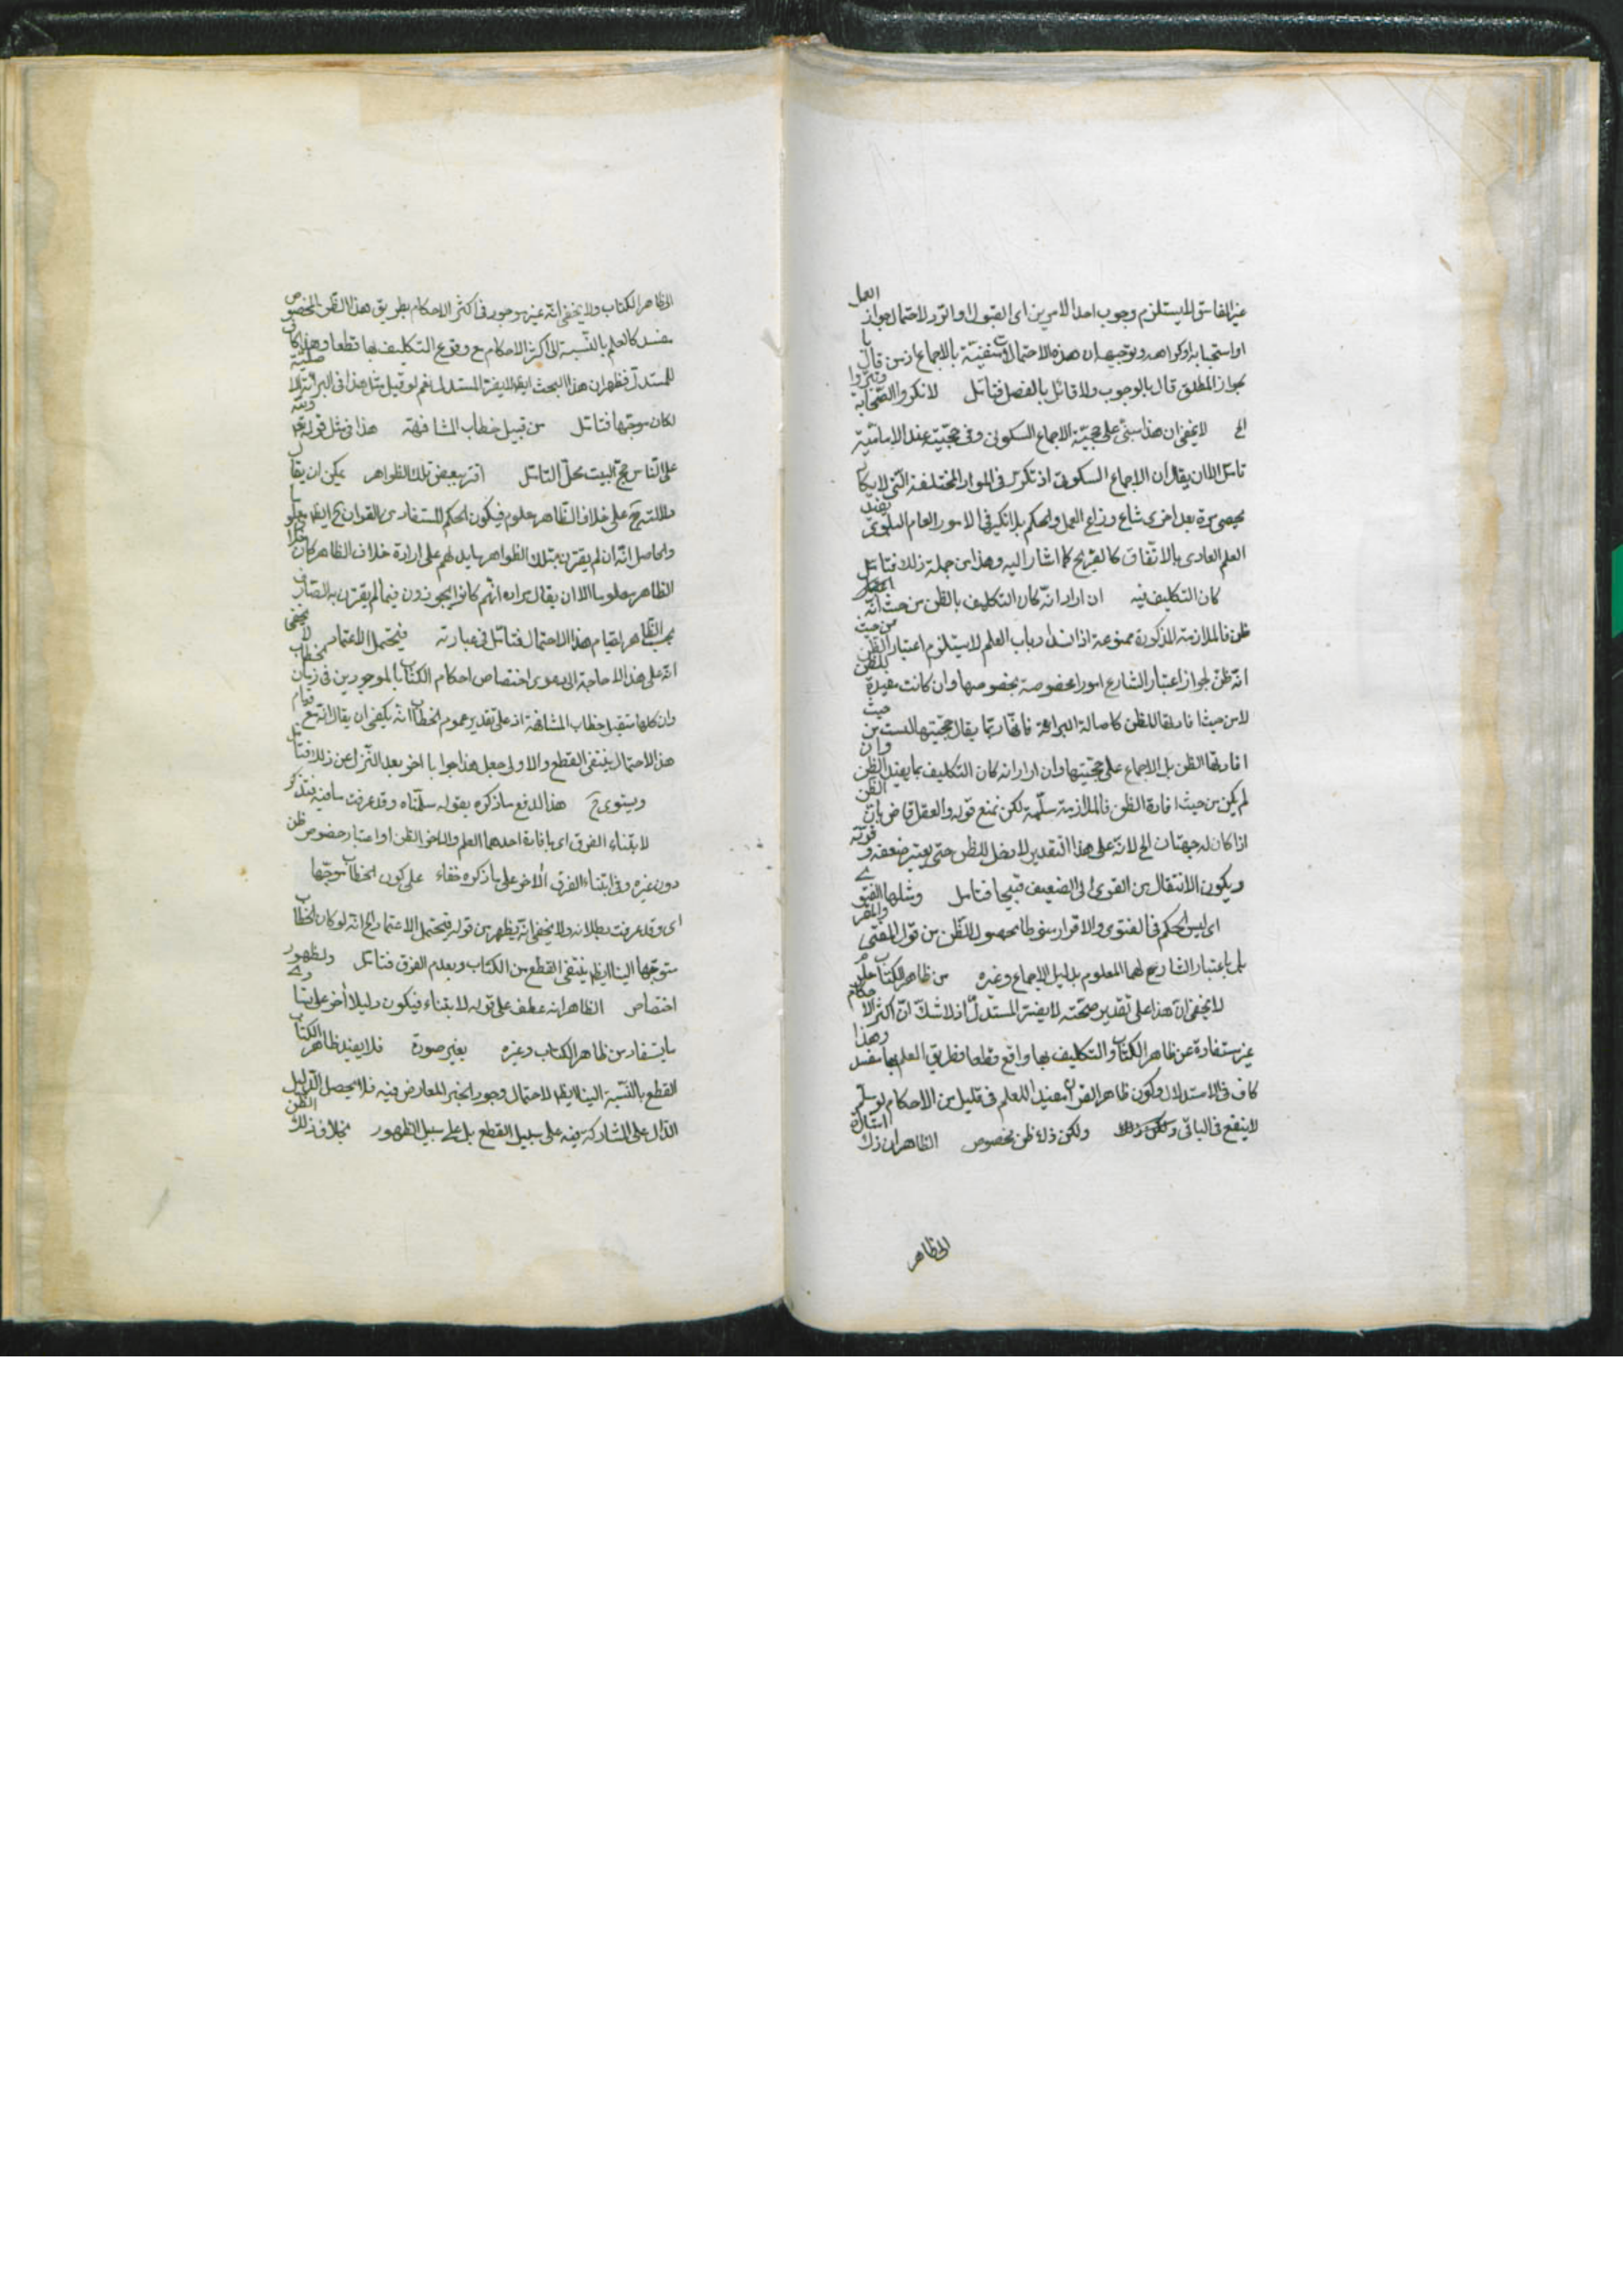 غير الفاسق لا يستلزم وجوب احد الامرين اى القبول او الرد لاحتمال جواز العمل
او استحبابه او كراهته وتوجيهه ان هذه الاحتمالات منفية بالاجماع اذ من قال
بجواز المطلق قال بالوجوب ولا قائل بالفصل فتامل لانكروا الصحابة
الخ لا يخفى ان هذا مبنى على حجية الاجماع السكوتى وفى حجيته عند الامامية
تامل الا ان يقال ان الاجماع السكوتى اذ تكرر فى الموارد المختلفة التى لا يكا
يحصى مرة بعد اخرى شاع وذاع العمل والحكم بلا نكير فى الامور العام البلوى يفيد
العلم العادى بالاتفاق كالصريح كما اشار اليه وهذا من جملة ذلك فتامل
كان التكليف فيه ان اراد انه كان التكليف بالظن من حيث انه
ظن فالملازمة المذكورة ممنوعة اذ انسداد باب العلم لا يستلزم اعتبار الظن من حيث
انه ظن لجواز اعتبار الشارع امورا مخصوصة بخصوصها وان كانت مفيدة للظن
لا من حيث افادتها للظن كاصالة البراءة فانها ربما يقال حجيتها ليست من حيث
افادتها الظن بل الاجماع على حجيتها وان اراد انه كان التكليف بما يفيد الظن وان
لم يكن من حيث افادة الظن فالملازمة مسلمة لكن نمنع قوله والعقل قاض بان الظن
اذا كان له جهتان الخ لانه على هذا التقدير لا دخل للظن حتى يعتبر ضعفه و قوته
ويكون الانتقال من القوى الى الضعيف قبيحا فتامل ومثلها الفتوى
اى ليس الحكم فى الفتوى والاقرار منوطا بحصول الظن من قول المفتى والمقر
بل باعتبار الشارع لهما المعلوم بدليل الاجماع وغيره من ظاهر الكتاب
لا يخفى ان هذا على تقدير صحته لا يضر المستدل اذ لا شك ان اكثر الاحكام
غير مستفادة عن ظاهر الكتاب والتكليف بها واقع قطعا وطريق العلم بها منسد وهذا
كاف فى الاستدلال وكون ظاهر القران مفيدا للعلم فى قليل من الاحكام لو سلم
لا ينفع فى الباقى ولكن ذلك ظن مخصوص الظاهر ان ذلك اشارة
الى ظاهر
الى ظاهر الكتاب ولا يخفى انه غير موجود فى اكثر الاحكام بطريق هذا الظن المخصوص
منسد كالعلم بالنسبة الى اكثر الاحكام مع وقوع التكليف بها قطعا وهذا كاف
للمستدل فظهر ان هذا البحث ايضا لا يضر المستدل نعم لو قيل مثل هذا فى البراءة الاصلية
لكان موجها فتامل من قبيل خطاب المشافهة هذا فى مثل قوله
على الناس حج البيت محل التامل اقترن ببعض تلك الظواهر يمكن ان يقال
على خلاف الظاهر معلوم فيكون الحكم المستفاد من القران ح ايضا معلوما
والحاصل انه ان لم يقترن بتلك الظواهر ما يدلهم على ارادة خلاف الظاهر كان خلاف
الظاهر معلوما الا ان يقال مراده انهم كانوا يجوزون فيما لم يقترن به الصارف
بحسب الظاهر لقيام هذا الاحتمال فتامل فى عبارته فيحتمل الاعتماد لا يخفى
انه على هذا لا حاجة الى دعوى اختصاص احكام الكتاب بالموجودين فى زمان الخطاب
وان كلها من قبيل خطاب المشافهة اذ على تقدير عموم الخطاب انه يكفى ان يقال انه مع قيام
هذا الاحتمال ينتفى القطع والاولى جعل هذا جوابا اخر بعد التنزل عن ذلك فتامل
ويستوى ح هذا لدفع ما ذكره بقوله سلمناه وقد عرفت ما فيه فتذكر
لابتناء الفرق اى بافادة احدهما العلم والاخر الظن او اعتبار خصوص ظن
دون غيره وفى ابتناء الفرق الاخر على ما ذكره خفاء على كون الخطاب موجها
اى وقد عرفت بطلانه ولا يخفى انه يظهر من قوله فيحتمل الاعتماد الخ انه لو كان الخطاب
متوجها الينا ايضا ينتفى القطع من الكتاب وبعدم الفرق فتامل ولظهور
اختصاص الظاهر انه عطف على قوله لابتناء فيكون دليلا اخر على
ما يستفاد من ظاهر الكتاب وغيره بغير صورة فلا يفيد ظاهر الكتاب
القطع بالنسبة الينا ايضا لاحتمال وجود الخبر المعارض فيه فلا يحصل الدليل
الدال على المشاركة فيه على سبيل القطع بل على سبيل الظهور بخلاف ذلك الظن